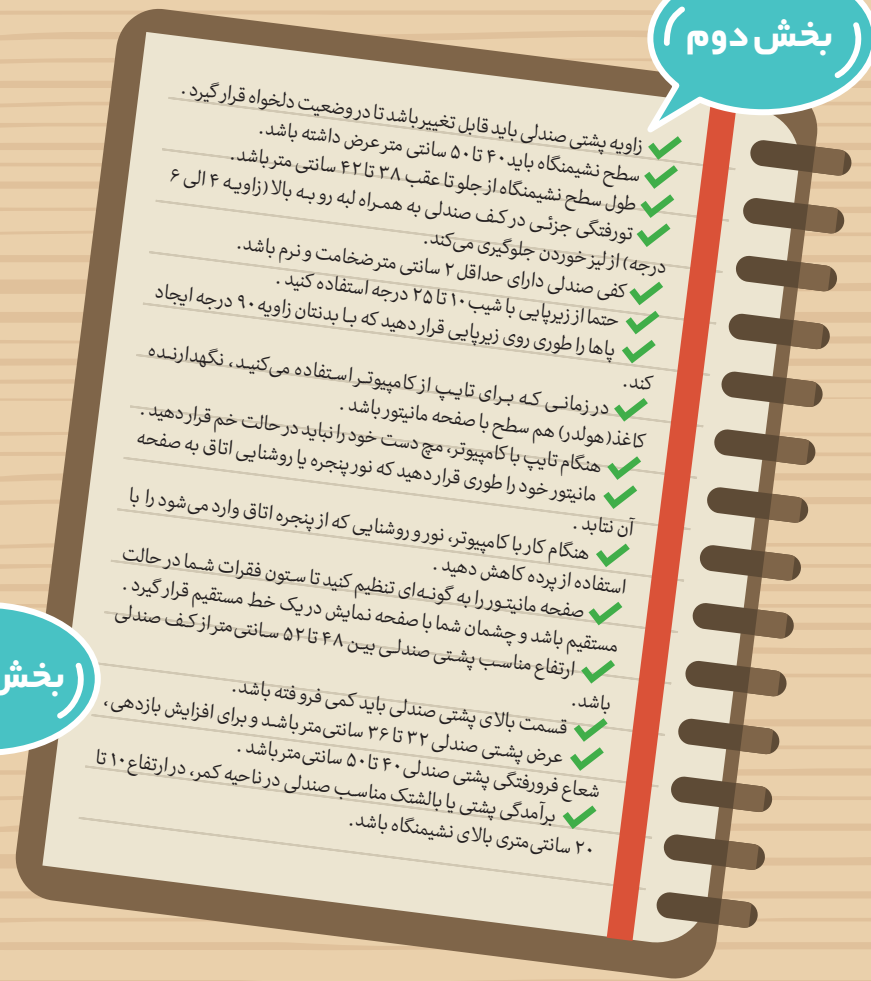 بخش دوم
زاویه پشتی صندلی باید قابل تغییر باشد تا در وضعیت دلخواه قرار گیرد .
سطح نشیمنگاه باید ۴۰ تا ۵۰ سانتی متر عرض داشته باشد.
طول سطح نشیمنگاه از جلو تا عقب ۳۸ تا ۴۲ سانتی متر باشد.
تورفتگی جزئی در کف صندلی به همراه لبه رو به بالا (زاویه ۴ الی ۶
درجه) از لیز خوردن جلوگیری می‌کند.
کفی صندلی دارای حداقل ۲ سانتی متر ضخامت و نرم باشد.
حتما از زیرپایی با شیب ۱۰ تا ۲۵ درجه استفاده کنید .
پاها را طوری روی زیرپایی قرار دهید که با بدنتان زاویه ۹۰ درجه ایجاد
کند.
در زمانی که برای تایپ از کامپیوتر استفاده می‌کنید، نگهدارنده
کاغذ(هولدر) هم سطح با صفحه مانیتور باشد .
هنگام تایپ با کامپیوتر، مچ دست خود را نباید در حالت خم قرار دهید .
مانیتور خود را طوری قرار دهید که نور پنجره یا روشنایی اتاق به صفحه
آن نتابد .
هنگام کار با کامپیوتر، نور و روشنایی که از پنجره اتاق وارد می‌شود را با
استفاده از پرده کاهش دهید .
صفحه مانیتور را به گونه‌ای تنظیم کنید تا ستون فقرات شما در حالت
مستقیم باشد و چشمان شما با صفحه نمایش در یک خط مستقیم قرار گیرد .
ارتفاع مناسب پشتی صندلی بین ۴۸ تا ۵۲ سانتی‌متر از کف صندلی
باشد.
قسمت بالای پشتی صندلی باید کمی فرو فته باشد.
عرض پشتی صندلی ۳۲ تا ۳۶ سانتی‌متر باشد و برای افزایش بازدهی،
شعاع فرورفتگی پشتی صندلی ۴۰ تا ۵۰ سانتی‌متر باشد .
برآمدگی پشتی یا بالشتک مناسب صندلی در ناحیه کمر، در ارتفاع ۱۰ تا
۲۰ سانتی‌متری بالای نشیمنگاه باشد.
بخش